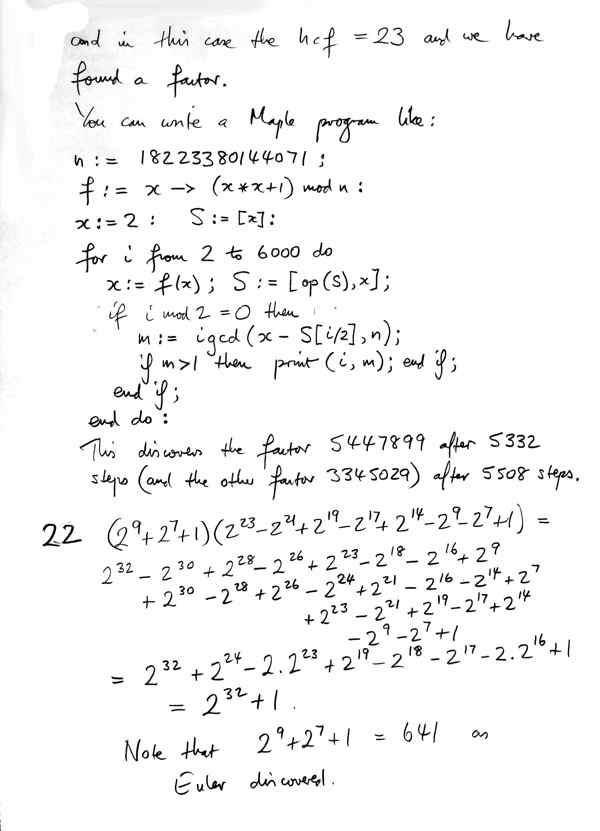 and in this case the hcf = 23 and we have
found a factor.
You can write a Maple program like:
n := 18223380144071;
f := x -> (x*x+1) mod n:
x:=2: S:=[x]:
for i from 2 to 6000 do
x:= f(x); S:= [op(S),x];
if i mod 2 = 0 then
m:= igcd(x - S[i/2], n);
if m>1 then print (i, m); end if;
end if;
end do:
This discovers the factor 5447899 after 5332
steps (and the other factor 3345029) after 5508 steps.
22 (2⁹+2⁷+1)(2²³-2²¹+2¹⁹-2¹⁷+2¹⁴-2⁹-2⁷+1) =
2³² - 2³⁰ + 2²⁸ - 2²⁶ + 2²³ - 2¹⁸ - 2¹⁶ + 2⁹
+ 2³⁰ - 2²⁸ + 2²⁶ - 2²⁴ + 2²¹ - 2¹⁶ - 2¹⁴ + 2⁷
+ 2²³ - 2²¹ + 2¹⁹ - 2¹⁷ + 2¹⁴
- 2⁹ - 2⁷ + 1
= 2³² + 2²⁴ - 2.2²³ + 2¹⁹ - 2¹⁸ - 2¹⁷ - 2.2¹⁶ + 1
= 2³² + 1.
Note that 2⁹+2⁷+1 = 641 as
Euler discovered.